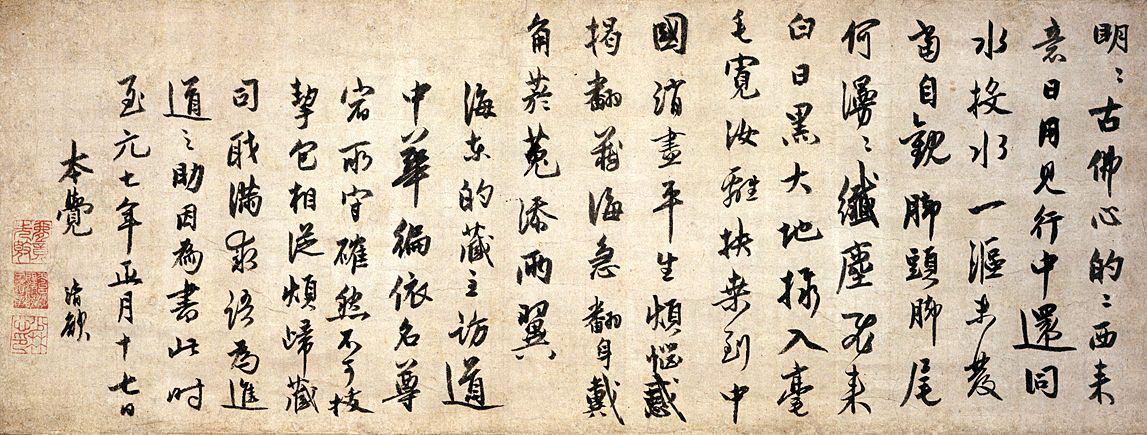 明〻古佛心的〻西来
意日用見行中還同
水投水一漚未發
當自觀脚頭脚尾
何漫〻纖塵飛来
白日黑大地撮入毫
毛寬汝離扶桒到中
國消盡平生煩惱惑
揭翻藏海急翻身戴
角菸菟添兩翼
海東的藏主訪道
中華徧依名尊
宿所守確然不可拔
挈包相從煩歸藏
司職滿求語為進
道之助因為書此时
至元七年正月十七日
本覺 清欲